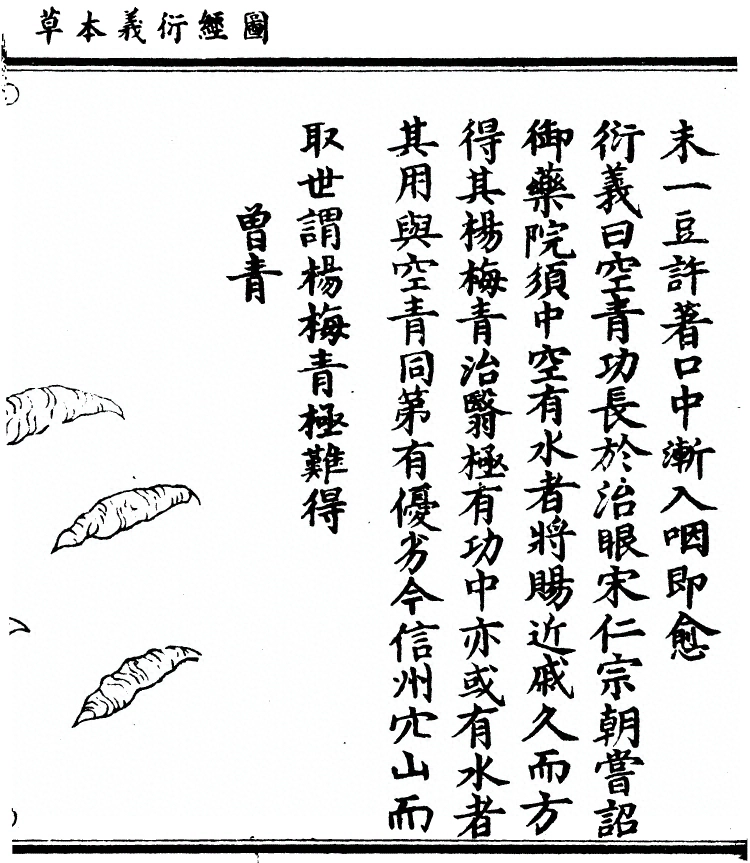 圖經衍義本草
末一豆許著口中漸入咽即愈
衍義曰空青功長於治眼宋仁宗朝嘗詔
御藥院須中空有水者將賜近戚久而方
得其楊梅青治翳極有功中亦或有水者
其用與空青同第有優劣今信州穴山而
取世謂楊梅青極難得
曾青